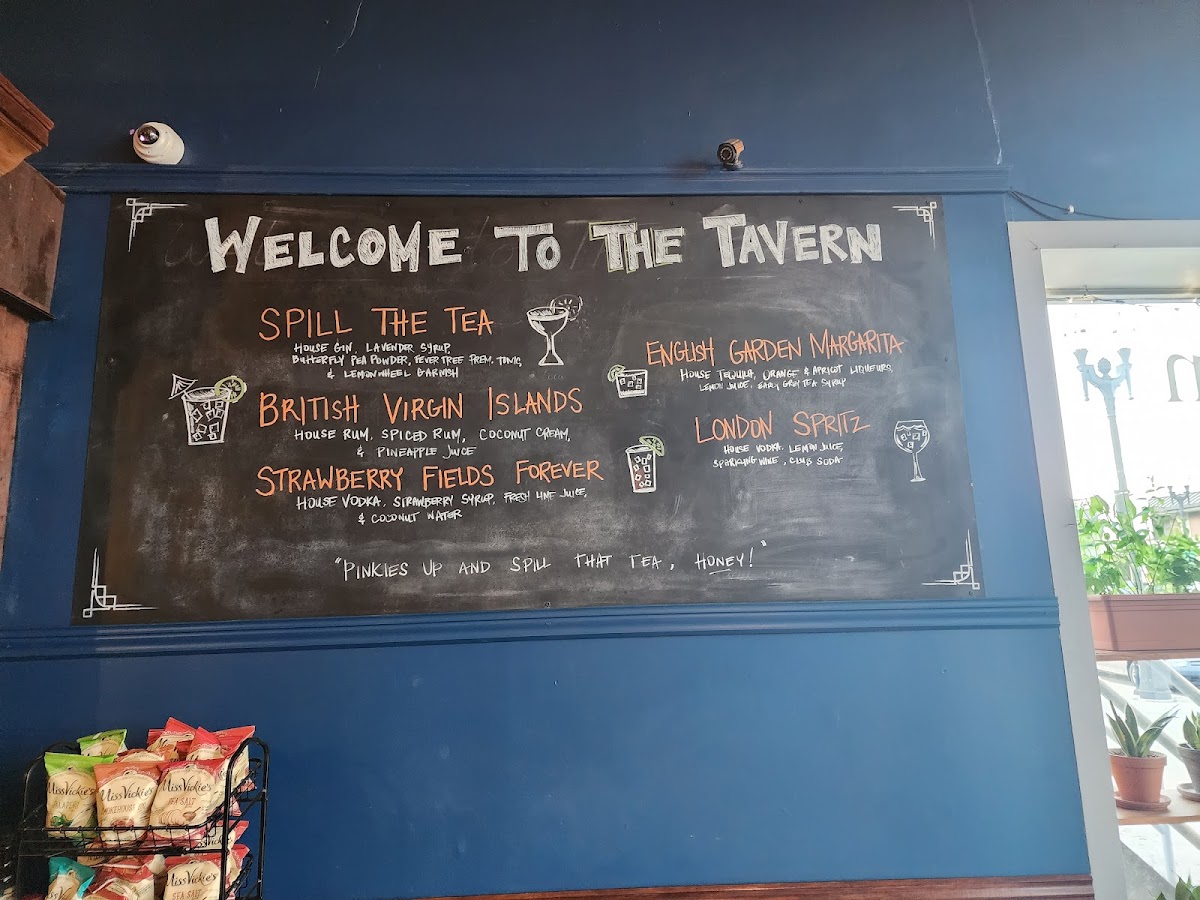 WELCOME TO THE TAVERN
SPILL THE TEA
HOUSE GIN, LAVENDER SYRUP,
BUTTERFLY PEA POWDER, FEVER TREE PREM. TONIC,
& LEMON WHEEL GARNISH
BRITISH VIRGIN ISLANDS
HOUSE RUM, SPICED RUM, COCONUT CREAM,
& PINEAPPLE JUICE
STRAWBERRY FIELDS FOREVER
HOUSE VODKA, STRAWBERRY SYRUP, FRESH LIME JUICE,
& COCONUT WATER
ENGLISH GARDEN MARGARITA
HOUSE TEQUILA, ORANGE & APRICOT LIQUEURS,
LEMON JUICE, EARL GREY TEA SYRUP
LONDON SPRITZ
HOUSE VODKA, LEMON JUICE,
SPARKLING WINE, CLUB SODA
"PINKIES UP AND SPILL THAT TEA, HONEY!"
Miss Vickie's
JALAPEÑO
Miss Vickie's
SMOKEHOUSE
Miss Vickie's
SEA SALT
Miss Vickie's
SEA SALT